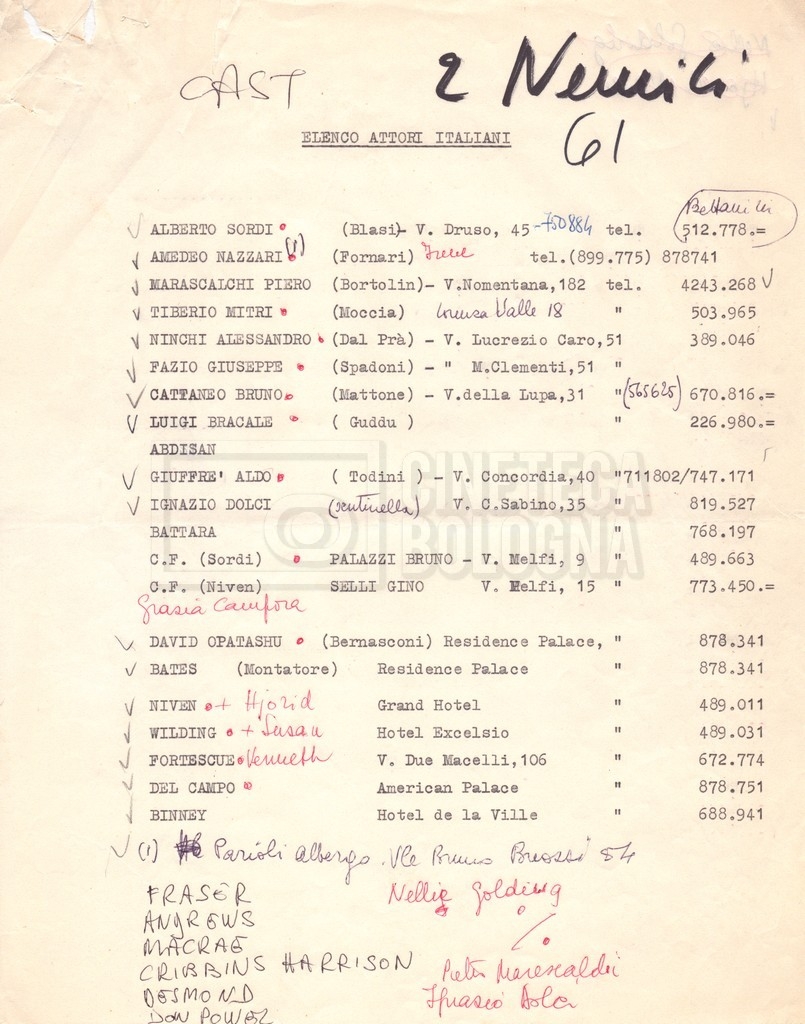 CAST
2 Nemici
61
ELENCO ATTORI ITALIANI
ALBERTO SORDI (Blasi)- V. Druso, 45 -750884 tel. 512.778.=
AMEDEO NAZZARI (1) (Fornari) tel.(899.775) 878741
MARASCALCHI PIERO (Bortolin)- V.Nomentana,182 tel. 4243.268
TIBERIO MITRI (Moccia) Lorenzo Valle 18 " 503.965
NINCHI ALESSANDRO (Dal Prà) - V. Lucrezio Caro,51 389.046
FAZIO GIUSEPPE (Spadoni) - " M.Clementi,51 "
CATTANEO BRUNO (Mattone) - V.della Lupa,31 "(565625) 670.816.=
LUIGI BRACALE ( Guddu ) " 226.980.=
ABDISAN
GIUFFRE' ALDO ( Todini ) - V. Concordia,40 "711802/747.171
IGNAZIO DOLCI (sentinella) V. C.Sabino,35 " 819.527
BATTARA " 768.197
C.F. (Sordi) PALAZZI BRUNO - V. Melfi, 9 " 489.663
C.F. (Niven) SELLI GINO V. Melfi, 15 " 773.450.=
Grasia Campora
DAVID OPATASHU (Bernasconi) Residence Palace, " 878.341
BATES (Montatore) Residence Palace " 878.341
NIVEN + Hjorid Grand Hotel " 489.011
WILDING + Susan Hotel Excelsio " 489.031
FORTESCUE Kenneth V. Due Macelli,106 " 672.774
DEL CAMPO American Palace " 878.751
BINNEY Hotel de la Ville " 688.941
(1) Parioli albergo. Vle Bruno Buossi 54
FRASER Nellie Golding
ANDREWS
MACRAE
CRIBBINS HARRISON Pieter Marescalchi
DESMOND Ignasio Dolci
DON POWEL
CINETECA
BOLOGNA